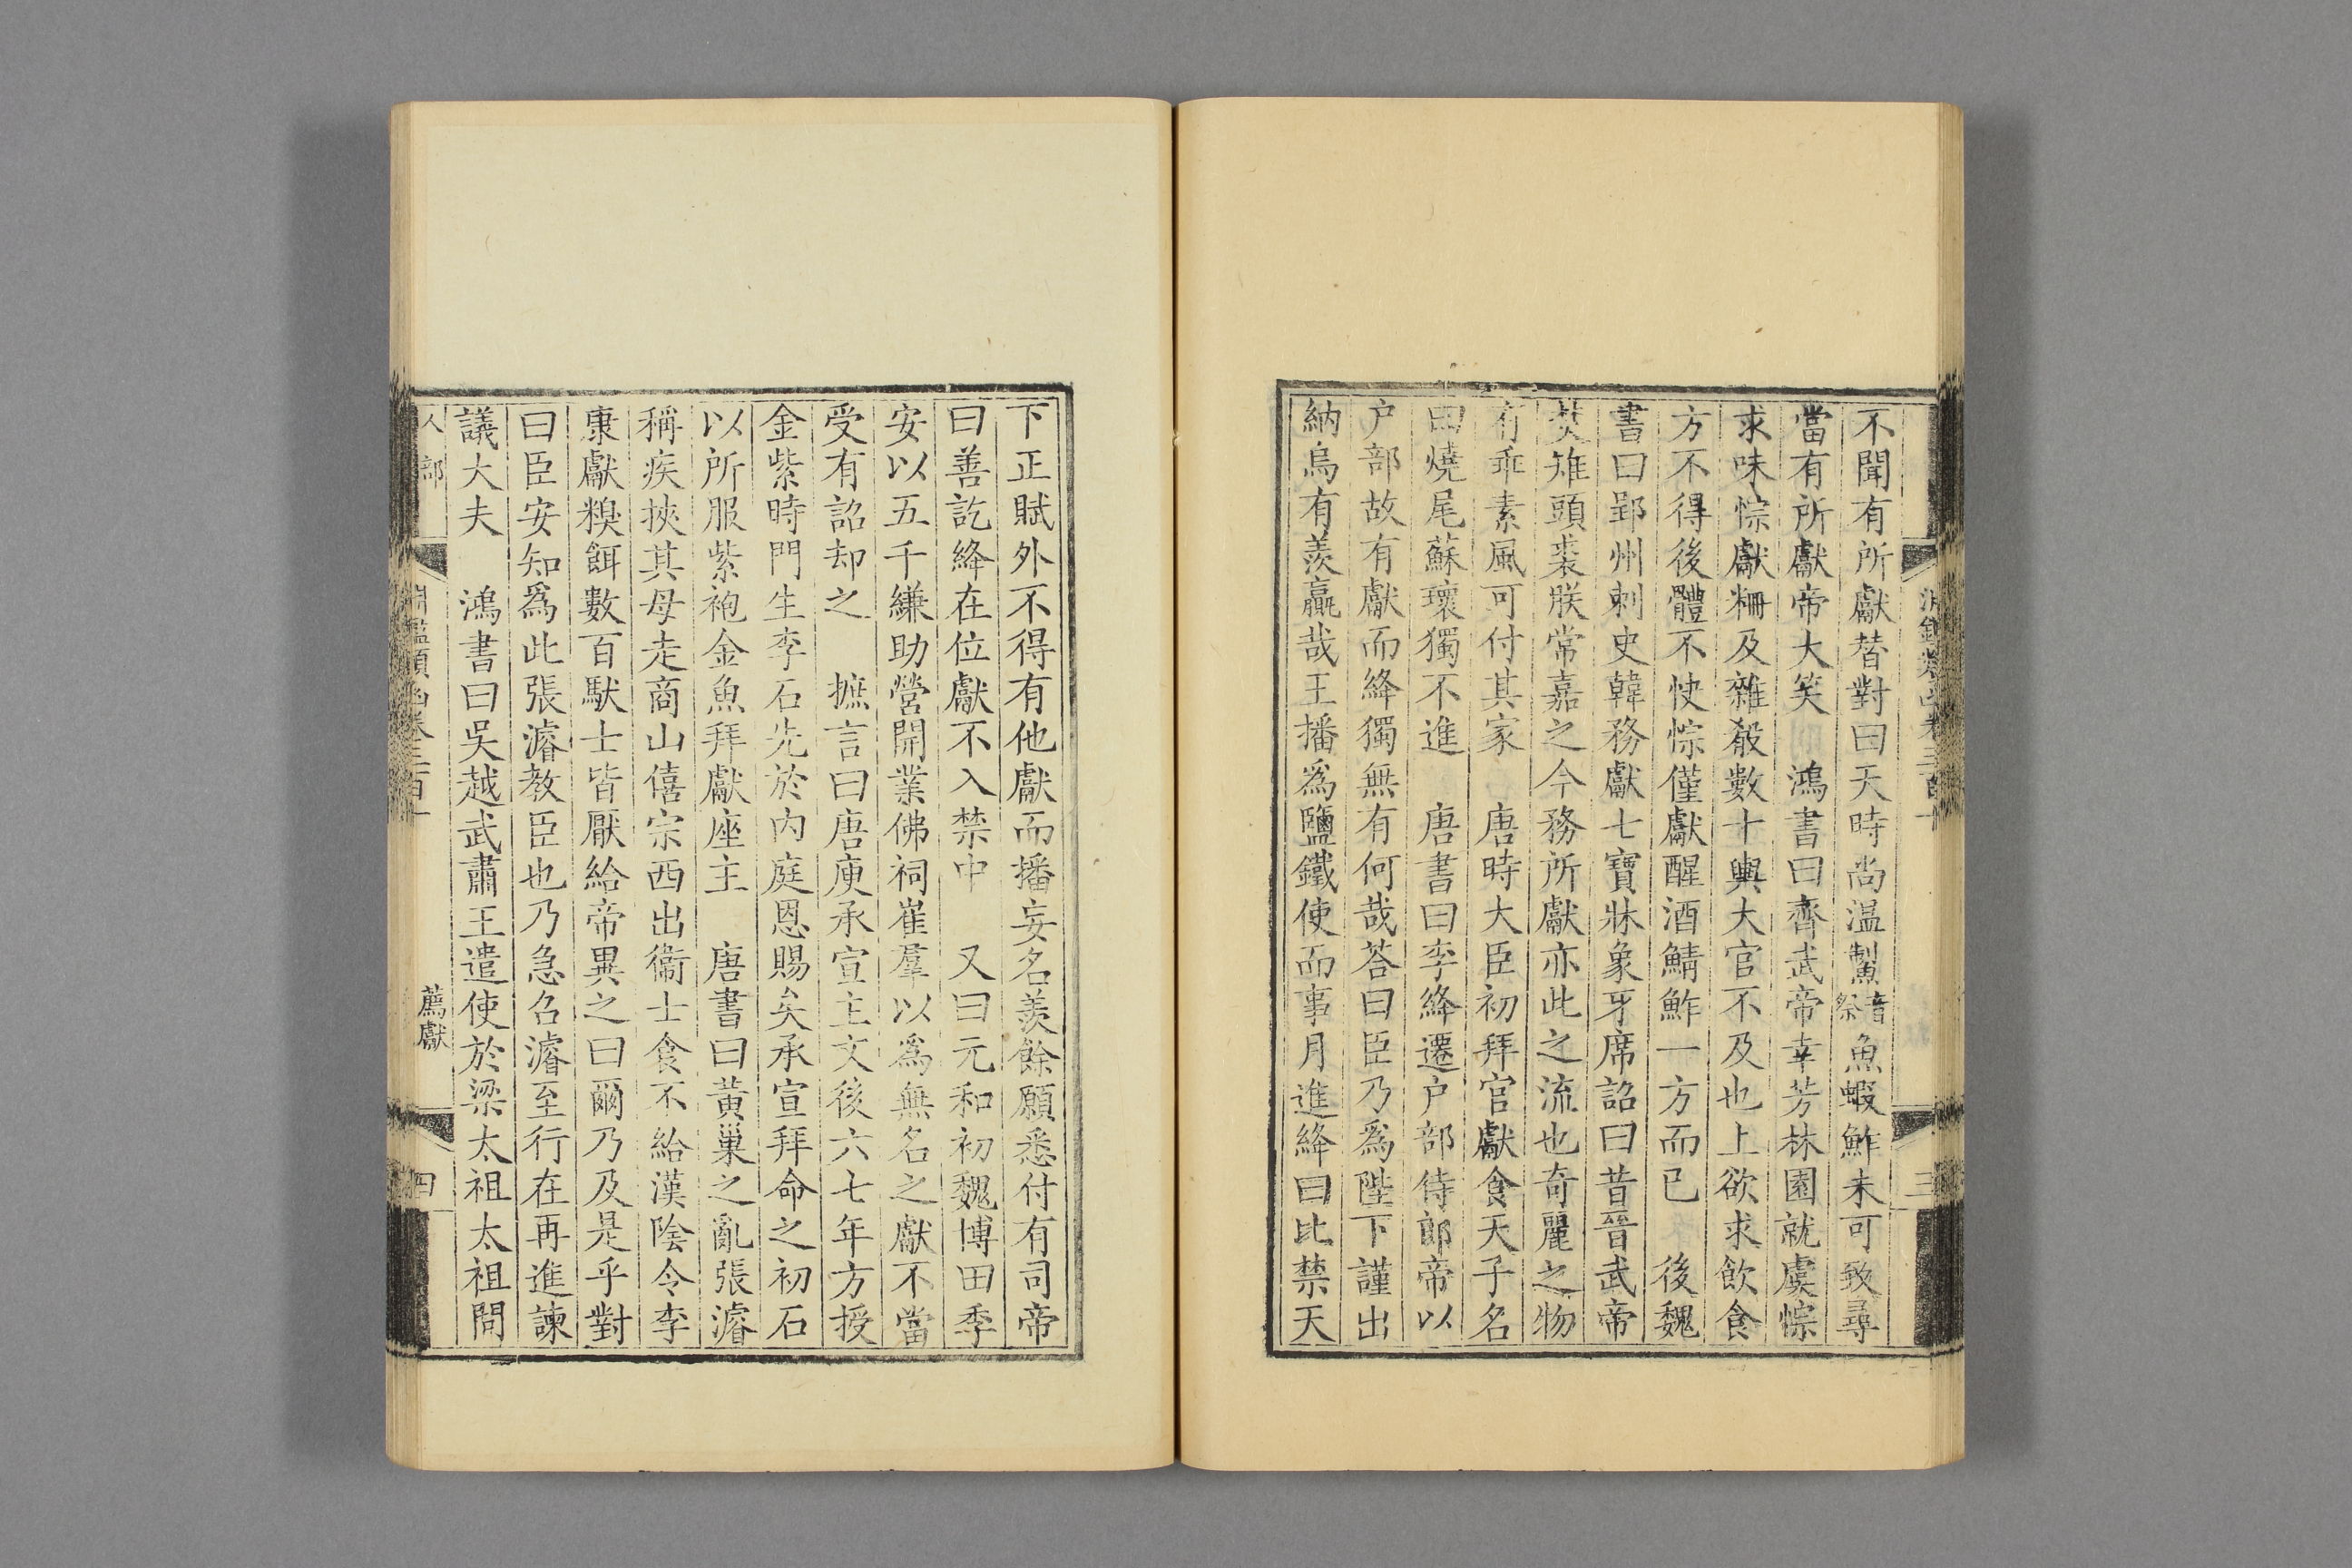 不聞有所獻替對曰天時尚溫鮆音祭魚蝦鮓未可致尋
當有所獻帝大笑　鴻書曰齊武帝幸芳林園就虞悰
求味悰獻粣及雜殽數十輿大官不及也上欲求飲食
方不得後體不快悰僅獻醒酒鯖鮓一方而已　後魏
書曰郢州刺史韓務獻七寶牀象牙席詔曰昔晉武帝
焚雉頭裘朕常嘉之今務所獻亦此之流也奇麗之物
有乖素風可付其家　唐時大臣初拜官獻食天子名
曰燒尾蘇瓌獨不進　唐書曰李絳遷户部侍郎帝以
户部故有獻而絳獨無有何哉荅曰臣乃爲陛下謹出
納烏有羨贏哉王播爲鹽鐵使而事月進絳曰比禁天
下正賦外不得有他獻而播妄名羨餘願悉付有司帝
曰善訖絳在位獻不入禁中　又曰元和初魏博田季
安以五千縑助營開業佛祠崔羣以爲無名之獻不當
受有詔却之　摭言曰唐庾承宣主文後六七年方授
金紫時門生李石先於内庭恩賜矣承宣拜命之初石
以所服紫袍金魚拜獻座主　唐書曰黃巢之亂張濬
稱疾挾其母走商山僖宗西出衞士食不給漢陰令李
康獻糗餌數百馱士皆厭給帝異之曰爾乃及是乎對
曰臣安知爲此張濬教臣也乃急召濬至行在再進諫
議大夫　鴻書曰吳越武肅王遣使於梁太祖太祖問
人部　淵鑑類函卷三百一　薦獻　四